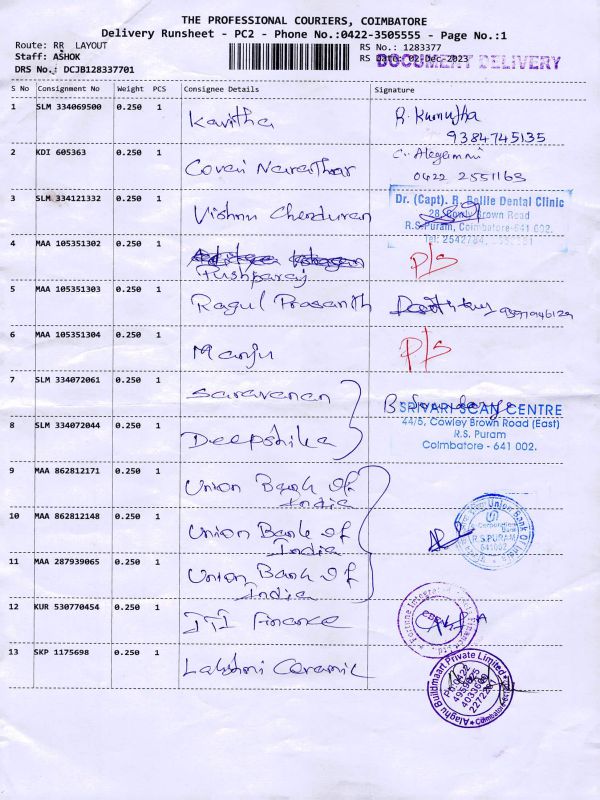 THE PROFESSIONAL COURIERS, COIMBATORE
Delivery Runsheet - PC2 - Phone No.:0422-3505555 - Page No.:1
Route: RR LAYOUT
Staff: ASHOK
DRS No.: DCJB128337701
RS No.: 1283377
RS Date: 02-Dec-2023
DOCUMENT DELIVERY
S No Consignment No Weight PCS Consignee Details Signature
1 SLM 334069500 0.250 1 Kavitha
9384745135
2 KDI 605363 0.250 1 Covai
0422 2551163
3 SLM 334121332 0.250 1 Vishnu
Dr. (Capt). R. Bellie Dental Clinic
28, Cowly Brown Road
R.S.Puram, Coimbatore-641 002.
Tel: 2542784,
4 MAA 105351302 0.250 1 Pushparaj P/s
5 MAA 105351303 0.250 1 Ragul Prasanth
6 MAA 105351304 0.250 1 Manju P/s
7 SLM 334072061 0.250 1 Saravanan
SRIVARI SCAN CENTRE
44/5, Cowley Brown Road (East)
R.S. Puram
Coimbatore - 641 002.
8 SLM 334072044 0.250 1 Deepshika
9 MAA 862812171 0.250 1 Union Bank Of
India
10 MAA 862812148 0.250 1 Union Bank of
India
Union Bank Of India
Corporation
Bank
R.S.PURAM
641002
11 MAA 287939065 0.250 1 Union Bank of
India
12 KUR 530770454 0.250 1 ITI Finance
13 SKP 1175698 0.250 1 Lakshmi Ceramic
Alaghu Buildmaart Private Limited
Coimbatore